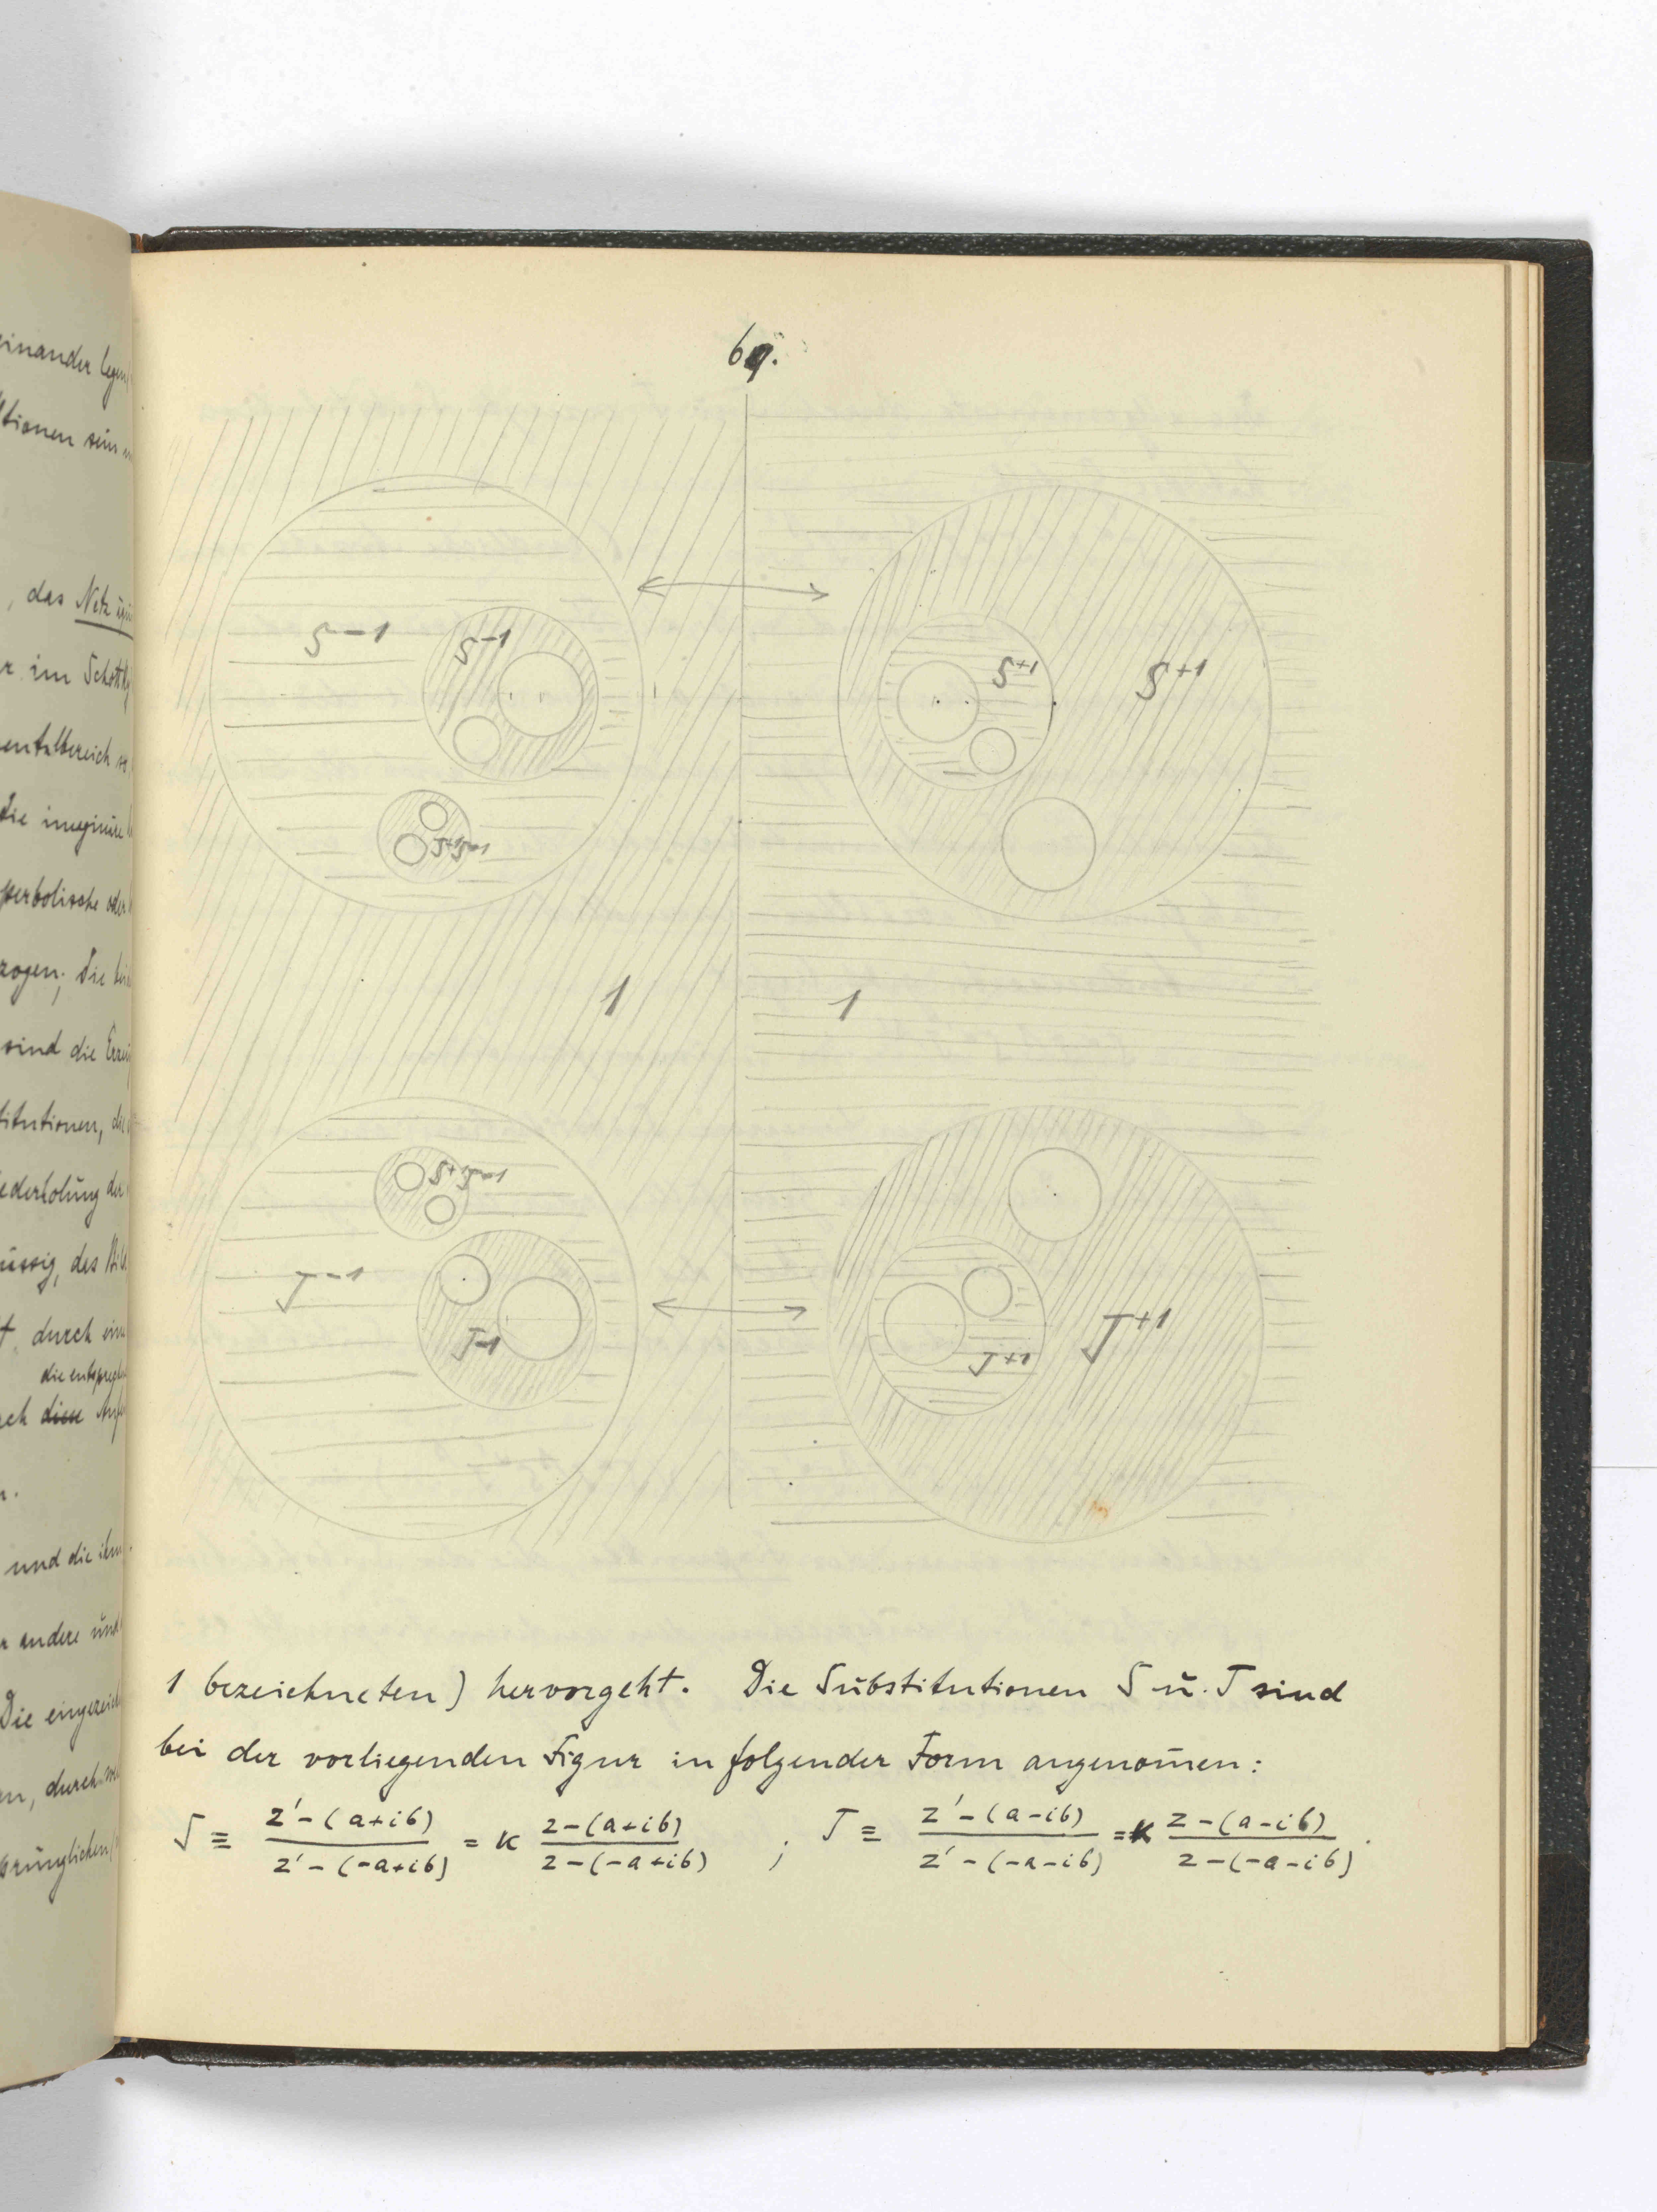 einander legen
tionen sein
das Netz
r im Schottky
entalbereich
die imaginäre
perbolische oder
zogen; die
sind die
titutionen, die
ederholung der
üssig, des
durch eine
die entsprech
ch diese
und die ihm
andere und
Die eingezeich
en, durch
prünglichen
69.
S⁻¹ S⁻¹ S⁺¹ S⁺¹
T⁺¹S⁻¹
1 1
S⁺¹T⁻¹
T⁻¹ T⁻¹ T⁺¹ T⁺¹
1 bezeichneten) hervorgeht. Die Substitutionen S ü. T sind
bei der vorliegenden Figur in folgender Form angenom̄en:
S ≡ (z' - (a+ib))/(z' - (-a+ib)) = κ (z - (a+ib))/(z - (-a+ib)) ; T ≡ (z' - (a-ib))/(z' - (-a-ib)) = κ (z - (a-ib))/(z - (-a-ib)).